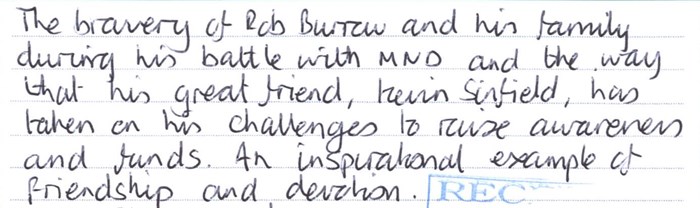 The bravery of Rob Burrow and his family
during his battle with MND and the way
that his great friend, Kevin Sinfield, has
taken on his challenges to raise awareness
and funds. An inspirational example of
friendship and devotion. REC